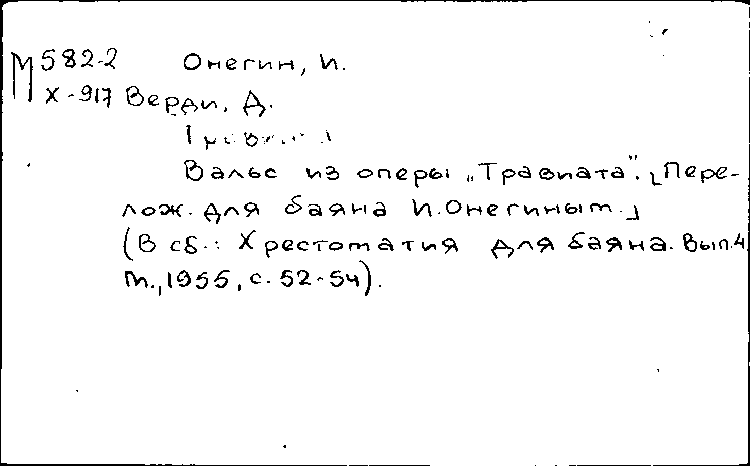 М 582-2 Онегин, И.
Х-917 Верди, Д.
Вальс из оперы „Травиата“. [Пере-
лож. для баяна И.Онегиным.]
(В сб.: Хрестоматия для баяна. Вып.4.
М., 1955, с. 52-54).